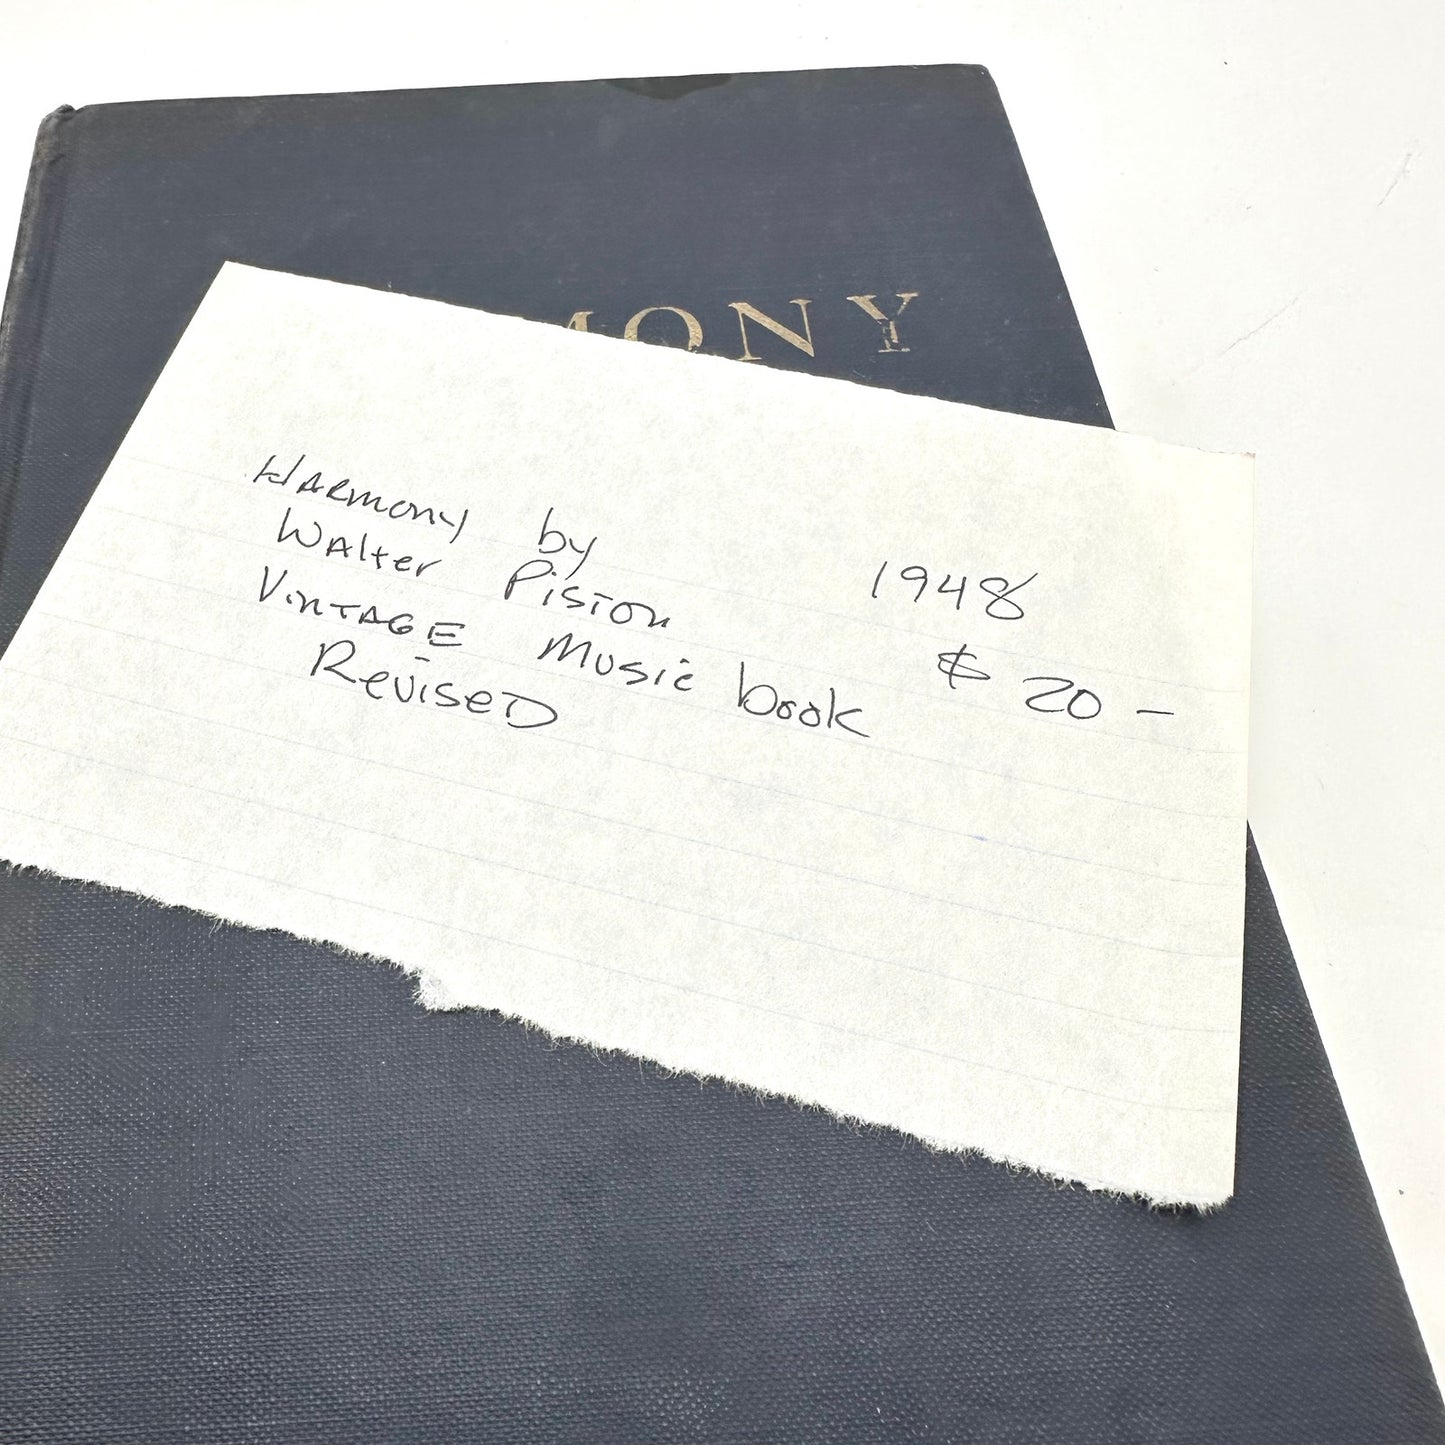 MONY
HARMONY by 1948
Walter Piston
VINTAGE Music book $ 20 -
Revised